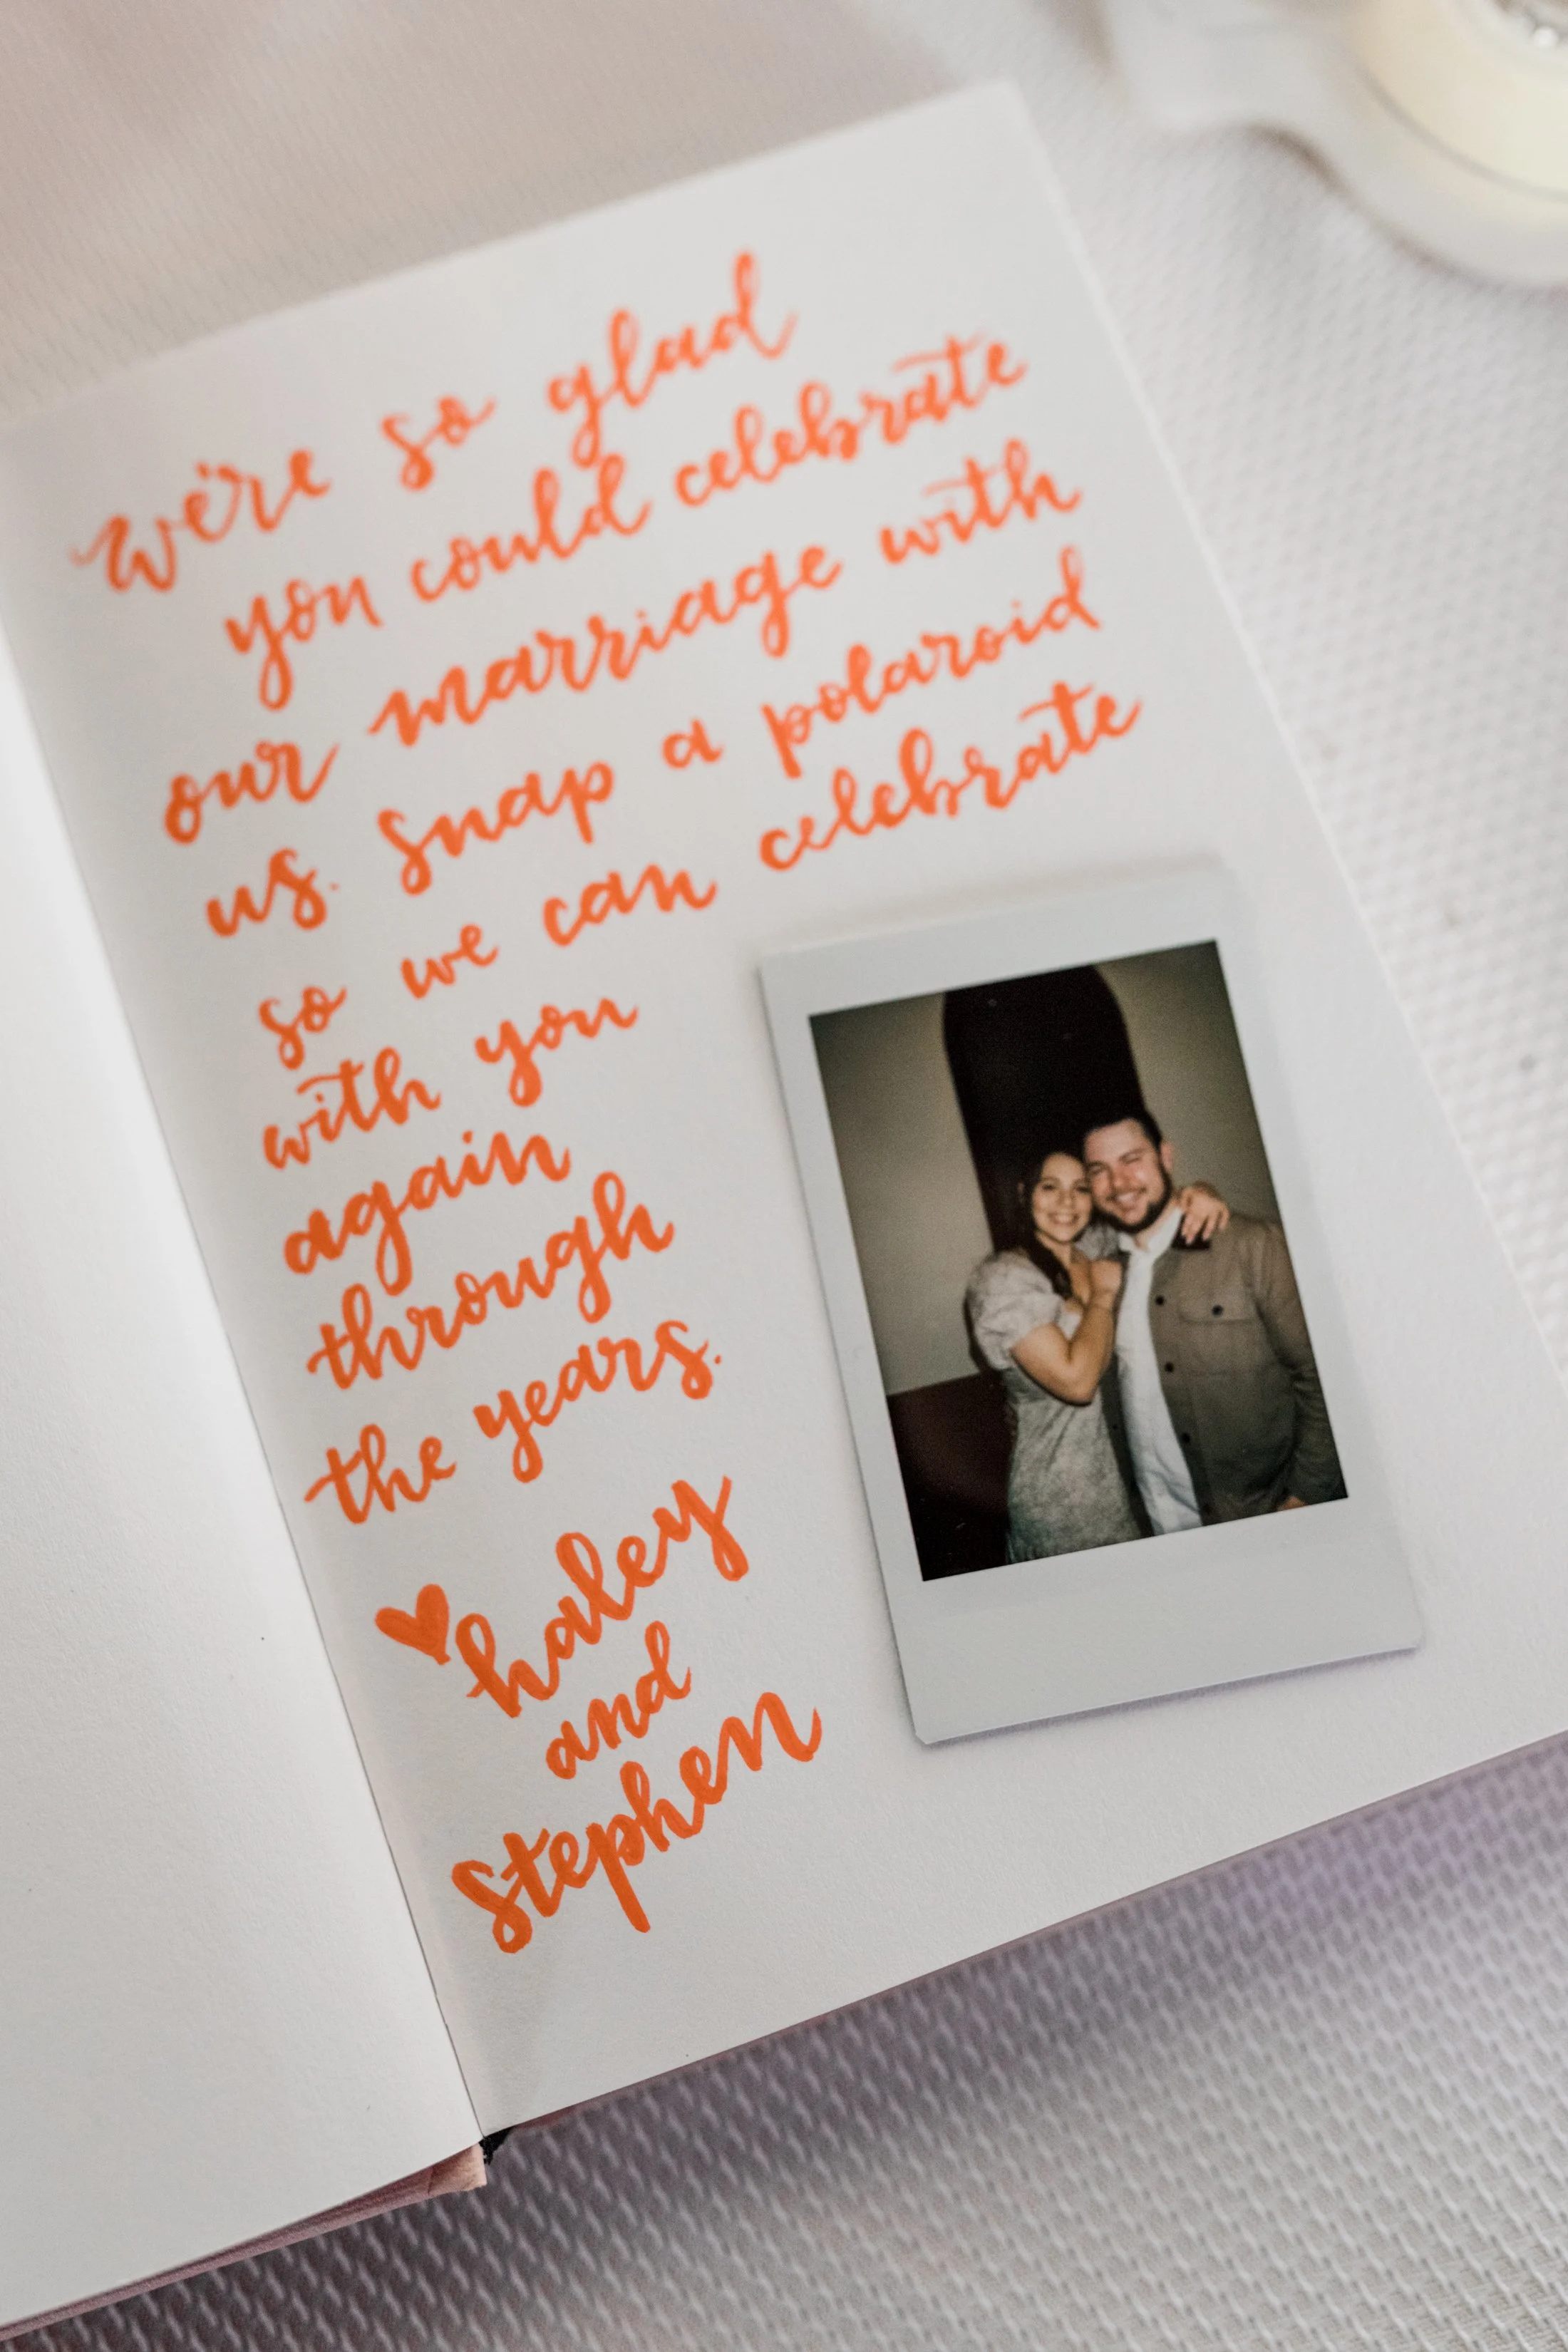 we're so glad
you could celebrate
our marriage with
us. snap a polaroid
so we can celebrate
with you
again
through
the years.
haley
and
stephen